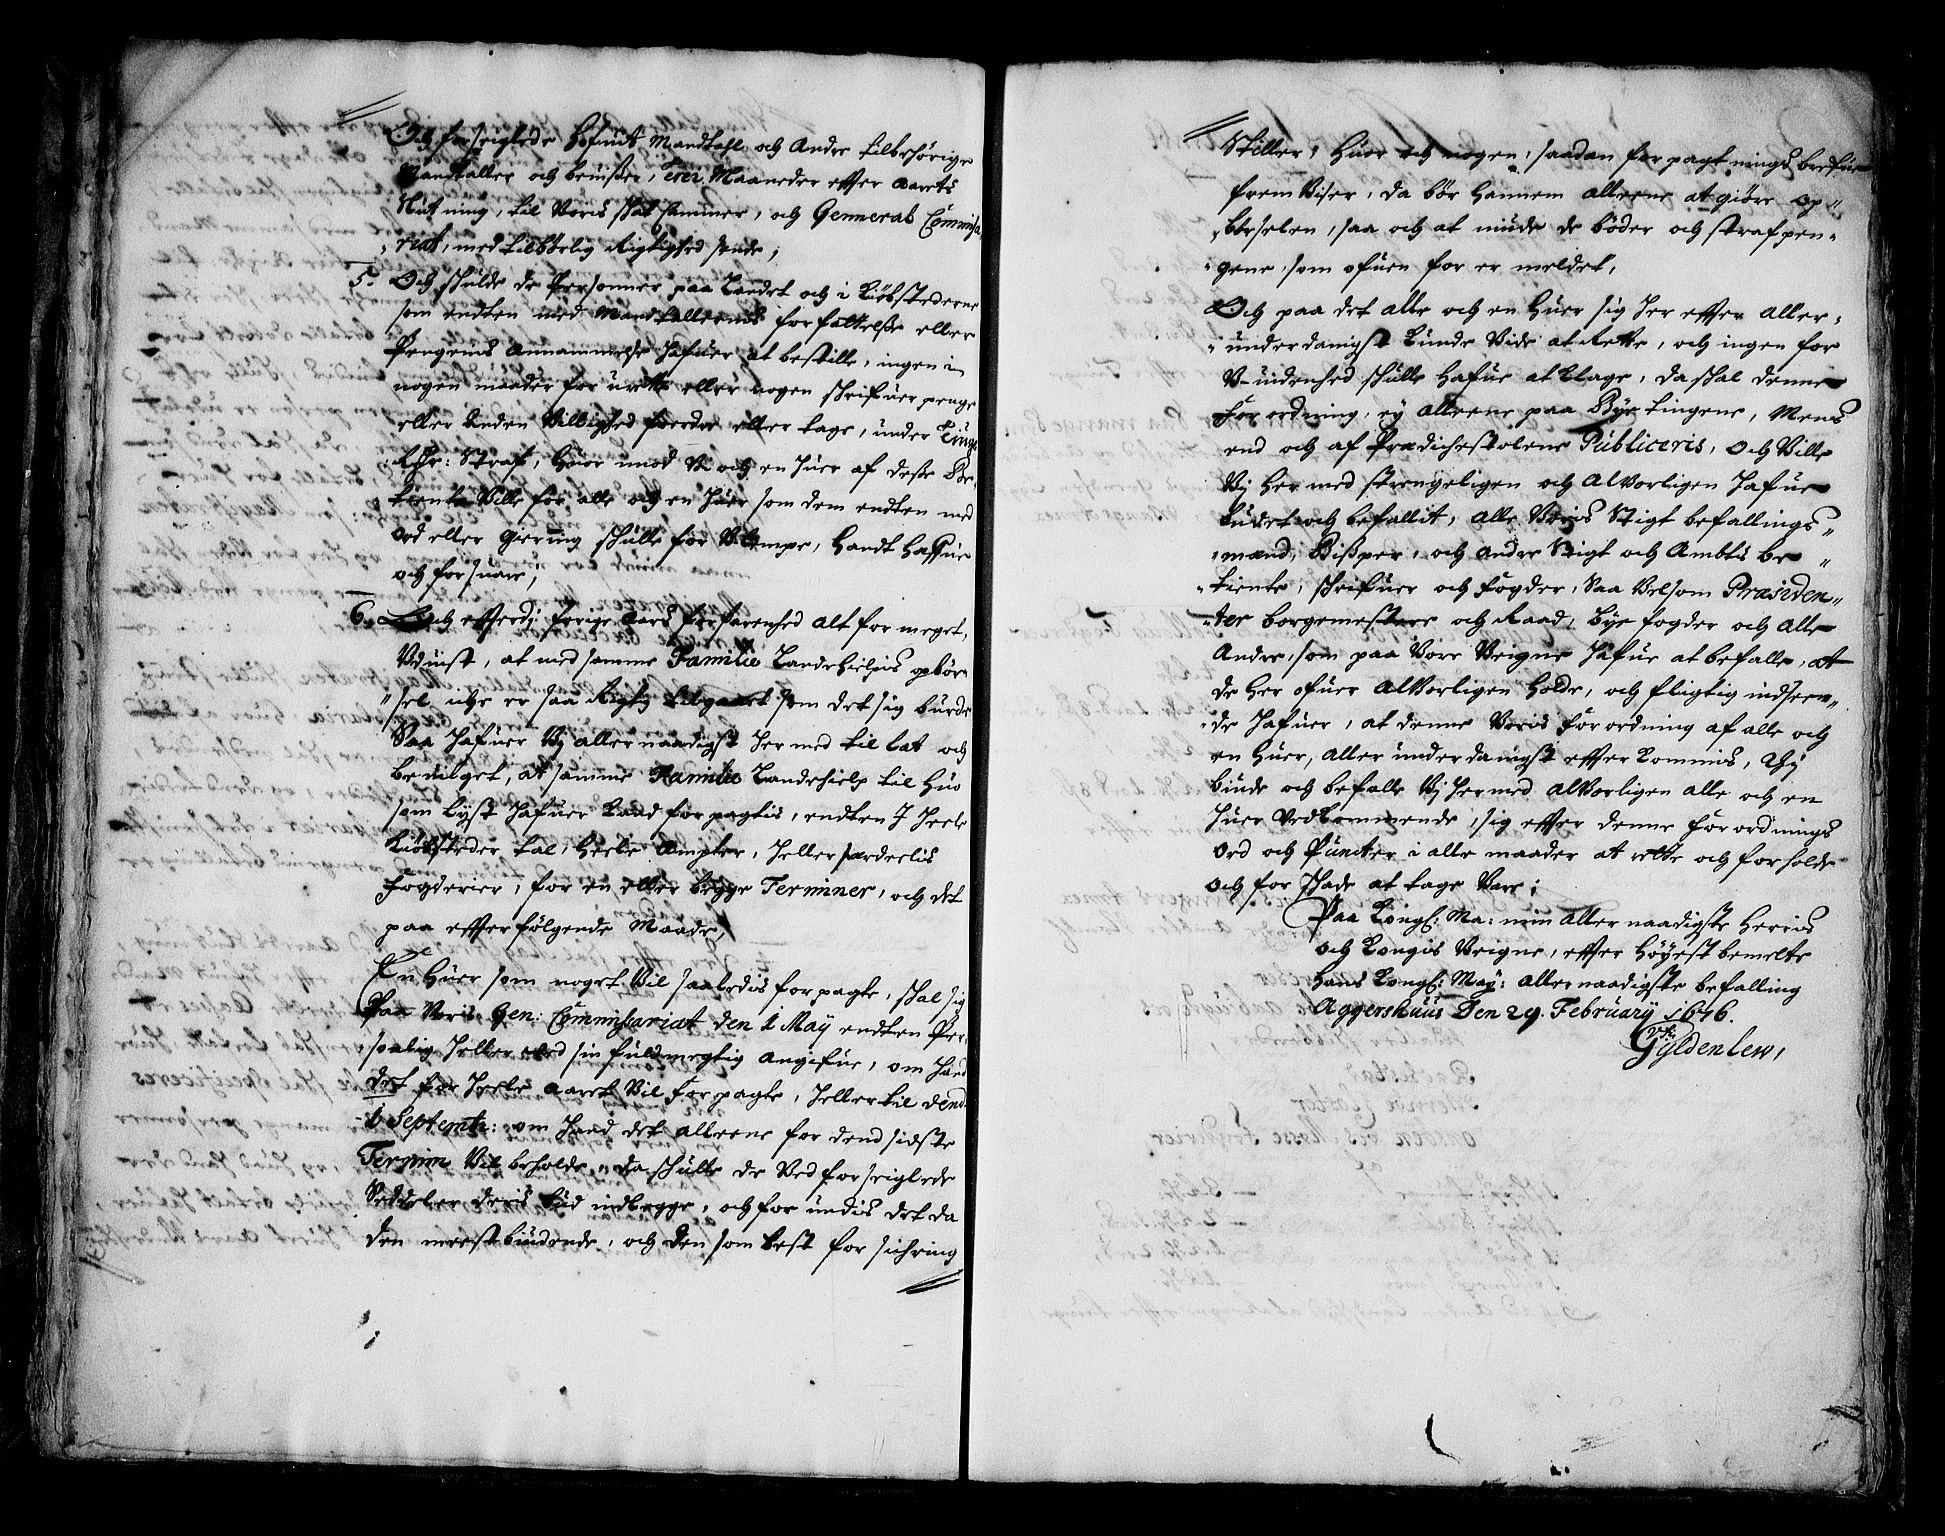 Och forseiglede Hofuit Mandtahl och Andre tilbehörige
Mandtaller och beuiser, trei Maaneder effter Aarets
Slutning, til Voris skat Cammer, och General Commissa„
„riat, med tilbörlig Rigtighed sende;
5. Och skulde de Personner paa Landet och i Kiöbstederne
som endten med Mandtallernis forfattelse eller
Pengenis Annammelse hafuer at bestille, ingen i
nogen maader forurette eller nogen skrifuer penge
eller Anden Villighed fordre eller tage, under
Straf, Huor imod Vi och en huer af disse Be„
tiente Ville for alle och en huer som dem endten med
ord eller giering skulle for Ulempe, Handt Haffue
och forsuare;
6. Och effterdj forige Aars forfarenhed alt for meget,
Vduist, at med samme Familie Landehielpis opbör„
„sel, icke er saa Rigtig tilgaaet som det sig burde
Saa hafuer Vj allernaadigst her med til lat och
beuilget, at samme Familie Landehielp til Huo
som Lyst hafuer Maa forpagtis, endten J heele
Kiöbsteder tal, Heele Ampter, heller særdeelis
Fogderier, for en eller begge Terminer, och det
paa effterfölgende Maade,
En Huer som noget Vil saaledis forpagte, skal sig
Paa Voris Gen: Commissariat den 1 May endten Per„
„sonlig heller Med sin fuldmegtig angifue, om hand
det for heele Aaret Vil Forpagte, heller til dend
1 Septemb: om hand det alleene for dend sidste
Termin Vil beholde, da skulle de Ved forseiglede
Seddeler deris bud indlegge, och for undis det da
den meestbiudende, och den som best for sichring
Stiller, Huor och nogen, saadan forpagtnings bref
frem Viser, da bör Hannem alleene at giöre Op„
„börselen, saa och at niude de böder och straf pen„
„gene, som ofuen for er meldet,
Och paa det alle och en Huer sig her effter Aller„
„underdanigst kunde Vide at Rette, och ingen for
V-uidenhed skulle Hafue at klage, da skal denne
Forordning, ey Alleene paa Bye tingene, Mens
end och af Prædichestolene Publiceris, och Ville
Vj Her med strengeligen och Alvorligen hafue
budet och befallit, Alle Voris Stigt befallings„
„mænd, Bisper, och Andre Stigt och Ambts be„
„tiente, skrifuer och Fogder, Saa Velsom Præsiden„
„ter borgemestere och Raad, Bye fogder och Alle
Andre, som paa Vore Veigne hafue at befalle, at
de Her ofuer Alvorligen Holde, och fligtig indseen„
„de hafuer, at denne Voris Forordning af alle och
en Huer, Allerunderdanigst effterkommis, Thj
biude och befalle Vj hermed alvorligen alle och en
huer Vedkommende, sig effter denne Forordnings
Ord och Puncter i alle maader at rette och forholde
och for skade at tage Vare;
Paa Kongl: Ma: min Allernaadigste Herris
och Kongis Veigne, effter Höyest bemelte
Hans Kongl: May: Allernaadigste befalling
Aggershuus Den 29. February 1676.
Gyldenlew,